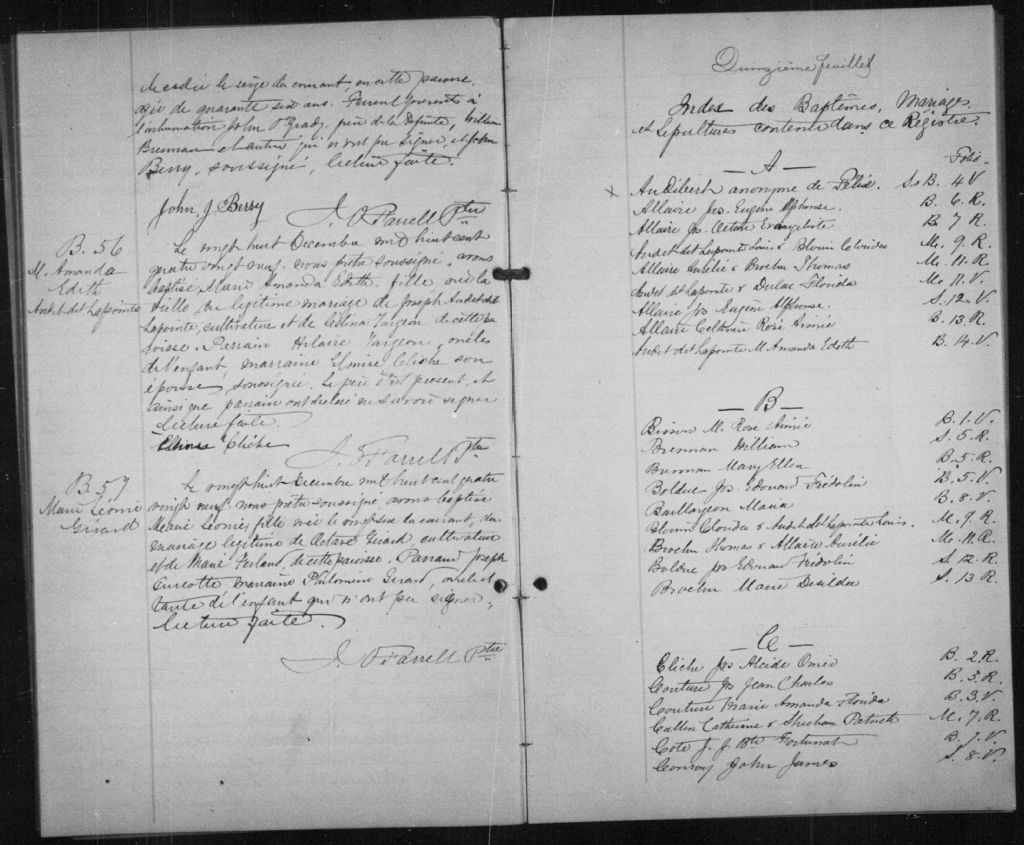 décédée le seize du courant, en cette paroisse,
agée de quarante six ans. Furent présents à
l'inhumation John O'Grady, père de la défunte, William
Brennan et autres qui n'ont pu signer, et John
Berry, soussigné, lecture faite.
John J Berry
J. O'Farrell Ptre
B. 56
M. Amanda
Edith
Audet dit Lapointe
Le vingt huit Decembre mil huit cent
quatre vingt neuf nous prêtre soussigné, avons
baptisé Marie Amanda Edith, fille née la
veille, du legitime mariage de Joseph Audet dit
Lapointe, cultivateur et de Celina Turgeon de cette pa
roisse. Parrain Hilaire Turgeon, oncle
de l'enfant, marraine Elmire Cliche son
épouse, soussignée. Le père était present, et
ainsi que parrain ont déclaré ne savoir signer
Lecture faite.
Elmire Cliche
J. O'Farrell Ptre
B. 57
Marie Léonie
Girard
Le vingt huit Decembre mil huit cent quatre
vingt neuf nous prêtre soussigné, avons baptisé
Marie Léonie, fille née le du courant, du
mariage legitime de Octave Girard, cultivateur
et de Marie Ferland, de cette paroisse. Parrain Joseph
Turcotte marraine Philomène Girard, oncle et
tante de l'enfant qui n'ont pu signer,
lecture faite.
J. O'Farrell Ptre
Quinzième feuillet
Index des Baptêmes, Mariages
et Sepultures contenu dans ce Régistre.
— A — Folio.
x Audibert anonyme de Félix. S. B. 4 V
Allaire Jos. Eugène Alphonse. B. 6. R.
Allaire Js. Octave Evangéliste B. 7 R.
Audet dit Lapointe Louis & Blouin Clorides M. 9. R.
Allaire Aurélie & Brochu Thomas M. 11. R.
Audet dit Lapointe & Dulac Florida M. 11. V.
Allaire Jos Eugène Alphonse. S. 12. V.
Allaire Rose Aimée B. 13. R.
Audet dit Lapointe M. Amanda Edith B. 14. V.
— B —
Bisson M. Rose Aimée B. 1. V.
Brennan William S. 5. R.
Brennan Mary Ellen B. 5. R.
Bolduc Jos. Edouard Frédolin B. 5. V.
Baillargeon Maria B. 8. V.
Blouin Clorides & Audet dit Lapointe Louis. M. 9. R.
Brochu Thomas & Allaire Aurélie M. 11. R.
Bolduc Jos Edouard Frédolin S. 12. R.
Brochu Marie Desilda S. 13 R.
— C —
Cliche Jos Alcide Omer B. 2. R.
Couture Js Jean Charles B. 3. R.
Couture Marie Amanda Florida B. 3. V.
Cullen Catherine & Sheehan Patrick M. 7. R.
Coté J. J. Bte Fortunat B. 7. V.
Conroy John James S. 8. V.